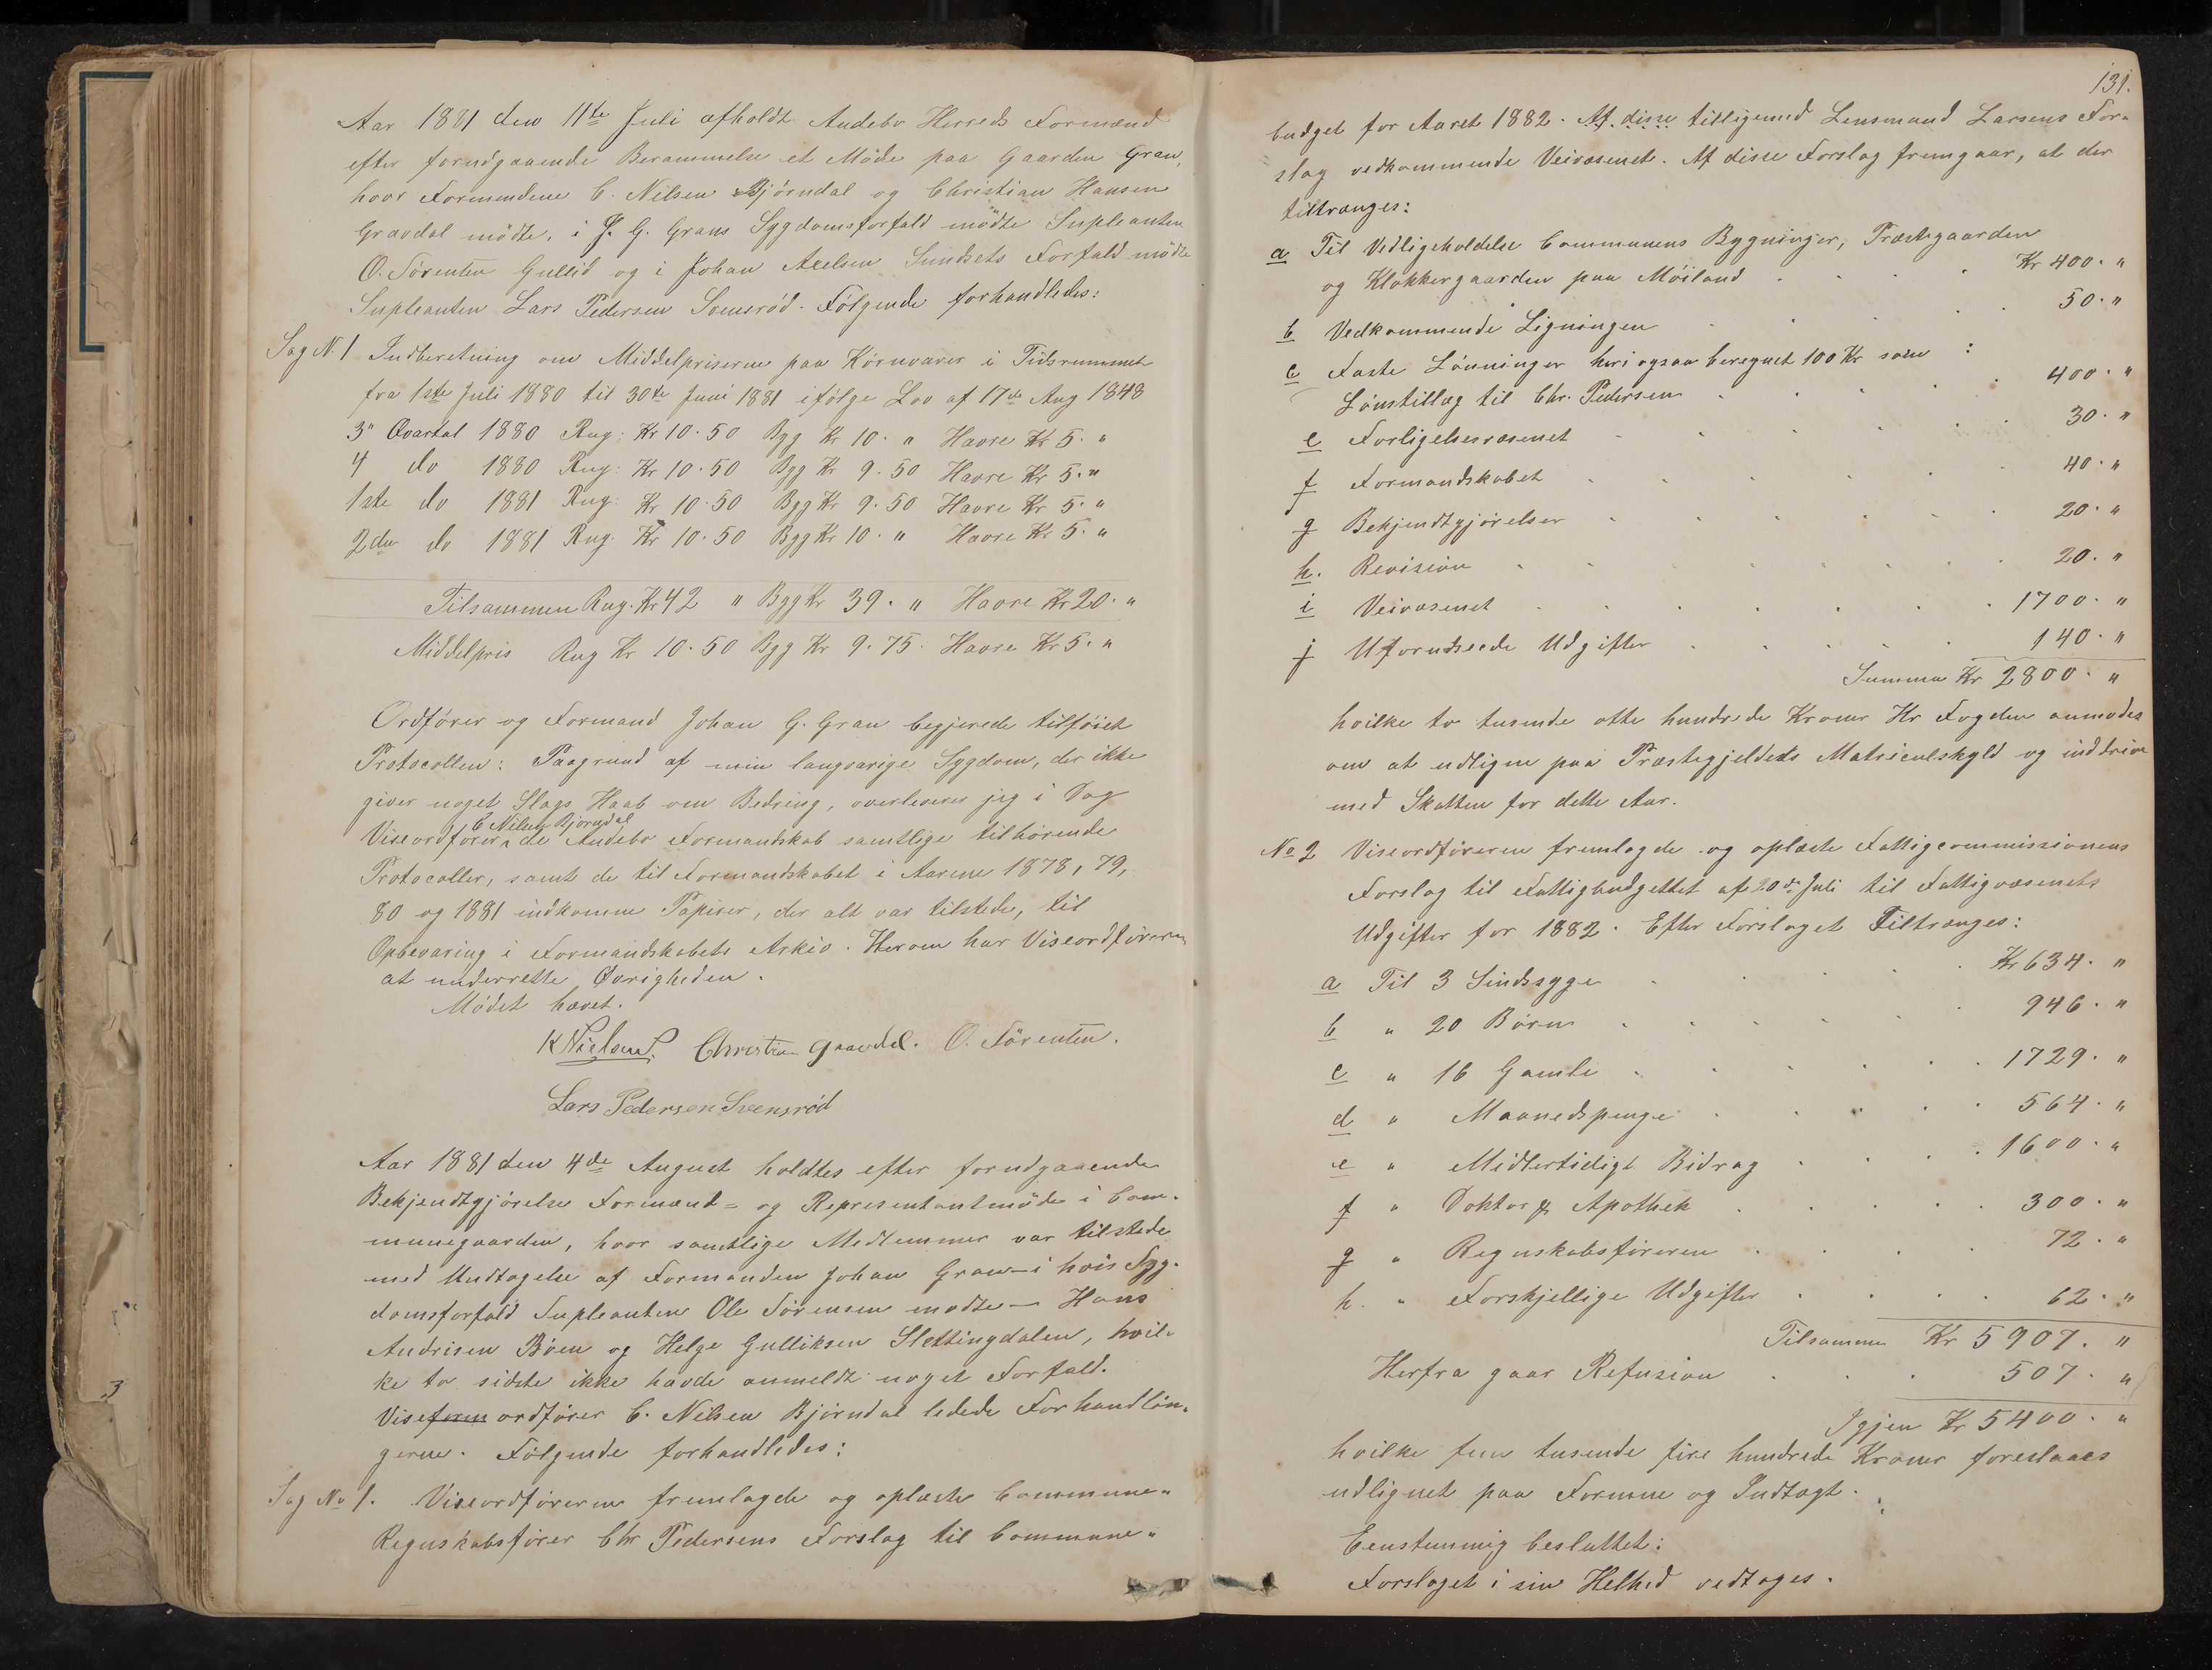 Aar 1881 den 11te Juli afholdt Andebo Herreds Formænd
efter forudgaaende Berammelse et Møde paa Gaarden Gran,
hvor Formændene C. Nilsen Bjørndal og Christian Hansen
Gravdal mødte, i J. G. Grans Sygdomsforfald mødte Supleanten
O. Sørenten Gullid og i Johan Axelsen Sundsets Forfald mødte
Supleanten Lars Pedersen Svensrød. Følgende forhandledes:
Sag N. 1 Indberetning om Middelpriserne paa Kornvarer i Tidsrummet
fra 1ste Juli 1880 til 30te Juni 1881 ifølge Lov af 17de Aug 1848
3" Qvartal 1880 Rug: Kr 10.50 Byg Kr 10. " Havre Kr 5. "
4 do 1880 Rug: Kr 10.50 Byg Kr 9.50 Havre Kr 5. "
1ste do 1881 Rug: Kr 10.50 Byg Kr 9.50 Havre Kr 5. "
2den do 1881 Rug. Kr 10.50 Byg Kr 10. " Havre Kr 5. "
Tilsammen Rug. Kr 42 " Byg Kr 39. " Havre Kr 20. "
Middelpris Rug Kr 10.50 Byg Kr 9.75. Havre Kr 5. "
Ordfører og Formand Johan G. Gran begjerede tilføiet
Protocollen: Paagrund af min langvarige Sygdom, der ikke
giver noget Slags Haab om Bedring, overleverer jeg i Dag
C Nilsen Bjørndal
Viseordfører de Andebo Formandskab samtlige tilhørende
Protocoller, samt de til Formandskabet i Aarene 1878, 79,
80 og 1881 indkomne Papirer, der alt var tilstede, til
Opbevaring i Formandskabets Arkiv. Herom har Viseordføreren
at underrette Øvrigheden.
Mødet hævet.
K Nielsen. Christian Gravdal. O. Sørenten.
Lars Pedersen Svensrød
Aar 1881 den 4de August holdtes efter forudgaaende
Bekjendtgjørelse Formænd= og Representantmøde i Com-
munegaarden, hvor samtlige Medlemmer var tilstede
med Undtagelse af Formanden Johan Gran – i hvis Syg-
domsforfald Supleanten Ole Sørensen mødte – Hans
Andrisen Bøen og Helge Gulliksen Slettingdalen, hvil-
ke to sidste ikke havde anmeldt noget Forfald.
Viseform ordfører C. Nilsen Bjørndal ledede Forhandlin-
gerne. Følgende forhandledes:
Sag No 1. Viseordføreren fremlagde og oplæste Commune-
Regnskabsfører Chr Pedersens Forslag til Commune-
131.
budget for Aaret 1882. Af disse tilligemed Lensmand Larsens For-
slag vedkommende Veivæsenet. Af disse Forslag fremgaar, at der
tiltrænges:
a Til Vedligeholdelse Communens Bygninger, Præstegaarden
og Klokkergaarden paa Møiland . . . Kr 400. "
b Vedkommende Ligningen . . . 50. "
c Faste Lønninger heri ogsaa beregnet 100 Kr som :
Lønstillæg til Chr. Pedersen . . . 400. "
e Forligelsesvæsenet . . . 30. "
f Formandskabet . . . 40. "
g Bekjendtgjørelser . . . 20. "
h. Revision . . . 20. "
i Veivæsenet . . . 1700. "
j Uforudseede Udgifter . . . 140. "
Summa Kr 2800. "
hvilke to tusende otte hundrede Kroner Hr Fogden anmodes
om at udligne paa Præstegjeldets Matriculskyld og inddrive
med Skatten for dette Aar.
No 2 Viseordføreren fremlagde og oplæste Fattigcommissionens
Forslag til Fattigbudgettet af 20de Juli til Fattigvæsenets
Udgifter for 1882. Efter Forslaget Tiltrænges:
a Til 3 Sindssyge . . . Kr 634. "
b " 20 Børn . . . 946. "
c " 16 Gamle . . . 1729. "
d " Maanedspenge . . . 564. "
e " Midlertidigt Bidrag . . . 1600. "
f " Doktor & Apothek . . . 300. "
g " Regnskabsføreren . . . 72. "
h. " Forskjellige Udgifter . . . 62. "
Tilsammen Kr 5907. "
Herfra gaar Refusion . . . 507. "
Igjen Kr 5400. "
hvilke fem tusende fire hundrede Kroner foreslaaes
udlignet paa Formue og Indtægt.
Eenstemmig besluttet:
Forslaget i sin Helhed vedtages.